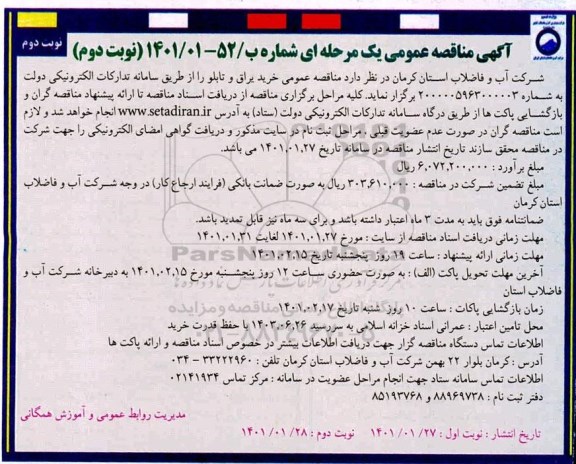 نوبت دوم
آگهی مناقصه عمومی یک مرحله ای شماره ب/۵۲-۱۴۰۱/۰۱ (نوبت دوم)
شرکت آب و فاضلاب استان کرمان در نظر دارد مناقصه عمومی خرید یراق و تابلو را از طریق سامانه تدارکات الکترونیکی دولت
به شماره ۲۰۰۰۰۰۵۹۶۳۰۰۰۰۰۳ برگزار نماید. کلیه مراحل برگزاری مناقصه از دریافت اسناد مناقصه تا ارائه پیشنهاد مناقصه گران و
بازگشایی پاکت ها از طریق درگاه سامانه تدارکات الکترونیکی دولت (ستاد) به آدرس www.setadiran.ir انجام خواهد شد و لازم
است مناقصه گران در صورت عدم عضویت قبلی ، مراحل ثبت نام در سایت مذکور و دریافت گواهی امضای الکترونیکی را جهت شرکت
در مناقصه محقق سازند تاریخ انتشار مناقصه در سامانه تاریخ ۱۴۰۱.۰۱.۲۷ می باشد.
مبلغ برآورد : ۶,۰۷۲,۲۰۰,۰۰۰ ریال
مبلغ تضمین شرکت در مناقصه : ۳۰۳,۶۱۰,۰۰۰ ریال به صورت ضمانت بانکی (فرایند ارجاع کار) در وجه شرکت آب و فاضلاب
استان کرمان
ضمانتنامه فوق باید به مدت ۳ ماه اعتبار داشته باشد و برای سه ماه نیز قابل تمدید باشد.
مهلت زمانی دریافت اسناد مناقصه از سایت : مورخ ۱۴۰۱.۰۱.۲۷ لغایت ۱۴۰۱.۰۱.۳۱
مهلت زمانی ارائه پیشنهاد : ساعت ۱۹ روز پنجشنبه تاریخ ۱۴۰۱.۰۲.۱۵
آخرین مهلت تحویل پاکت (الف) : به صورت حضوری ساعت ۱۲ روز پنجشنبه مورخ ۱۴۰۱.۰۲.۱۵ به دبیرخانه شرکت آب و
فاضلاب استان
زمان بازگشایی پاکات : ساعت ۱۰ روز شنبه تاریخ ۱۴۰۱.۰۲.۱۷
محل تامین اعتبار : عمرانی اسناد خزانه اسلامی به سررسید ۱۴۰۳.۰۶.۲۶ با حفظ قدرت خرید
اطلاعات تماس دستگاه مناقصه گزار جهت دریافت اطلاعات بیشتر در خصوص اسناد مناقصه و ارائه پاکت ها
آدرس : کرمان بلوار ۲۲ بهمن شرکت آب و فاضلاب استان کرمان تلفن : ۳۳۲۲۲۹۶۰ - ۰۳۴
اطلاعات تماس سامانه ستاد جهت انجام مراحل عضویت در سامانه : مرکز تماس ۰۲۱۴۱۹۳۴
دفتر ثبت نام : ۸۸۹۶۹۷۳۸ و ۸۵۱۹۳۷۶۸
مدیریت روابط عمومی و آموزش همگانی
تاریخ انتشار : نوبت اول : ۲۷/ ۰۱/ ۱۴۰۱ نوبت دوم : ۲۸/ ۰۱/ ۱۴۰۱